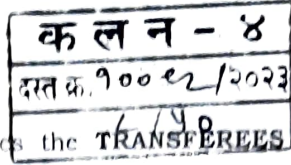 क ल न - ४
दस्त क्र. १००९२/२०२३
the TRANSFEREES